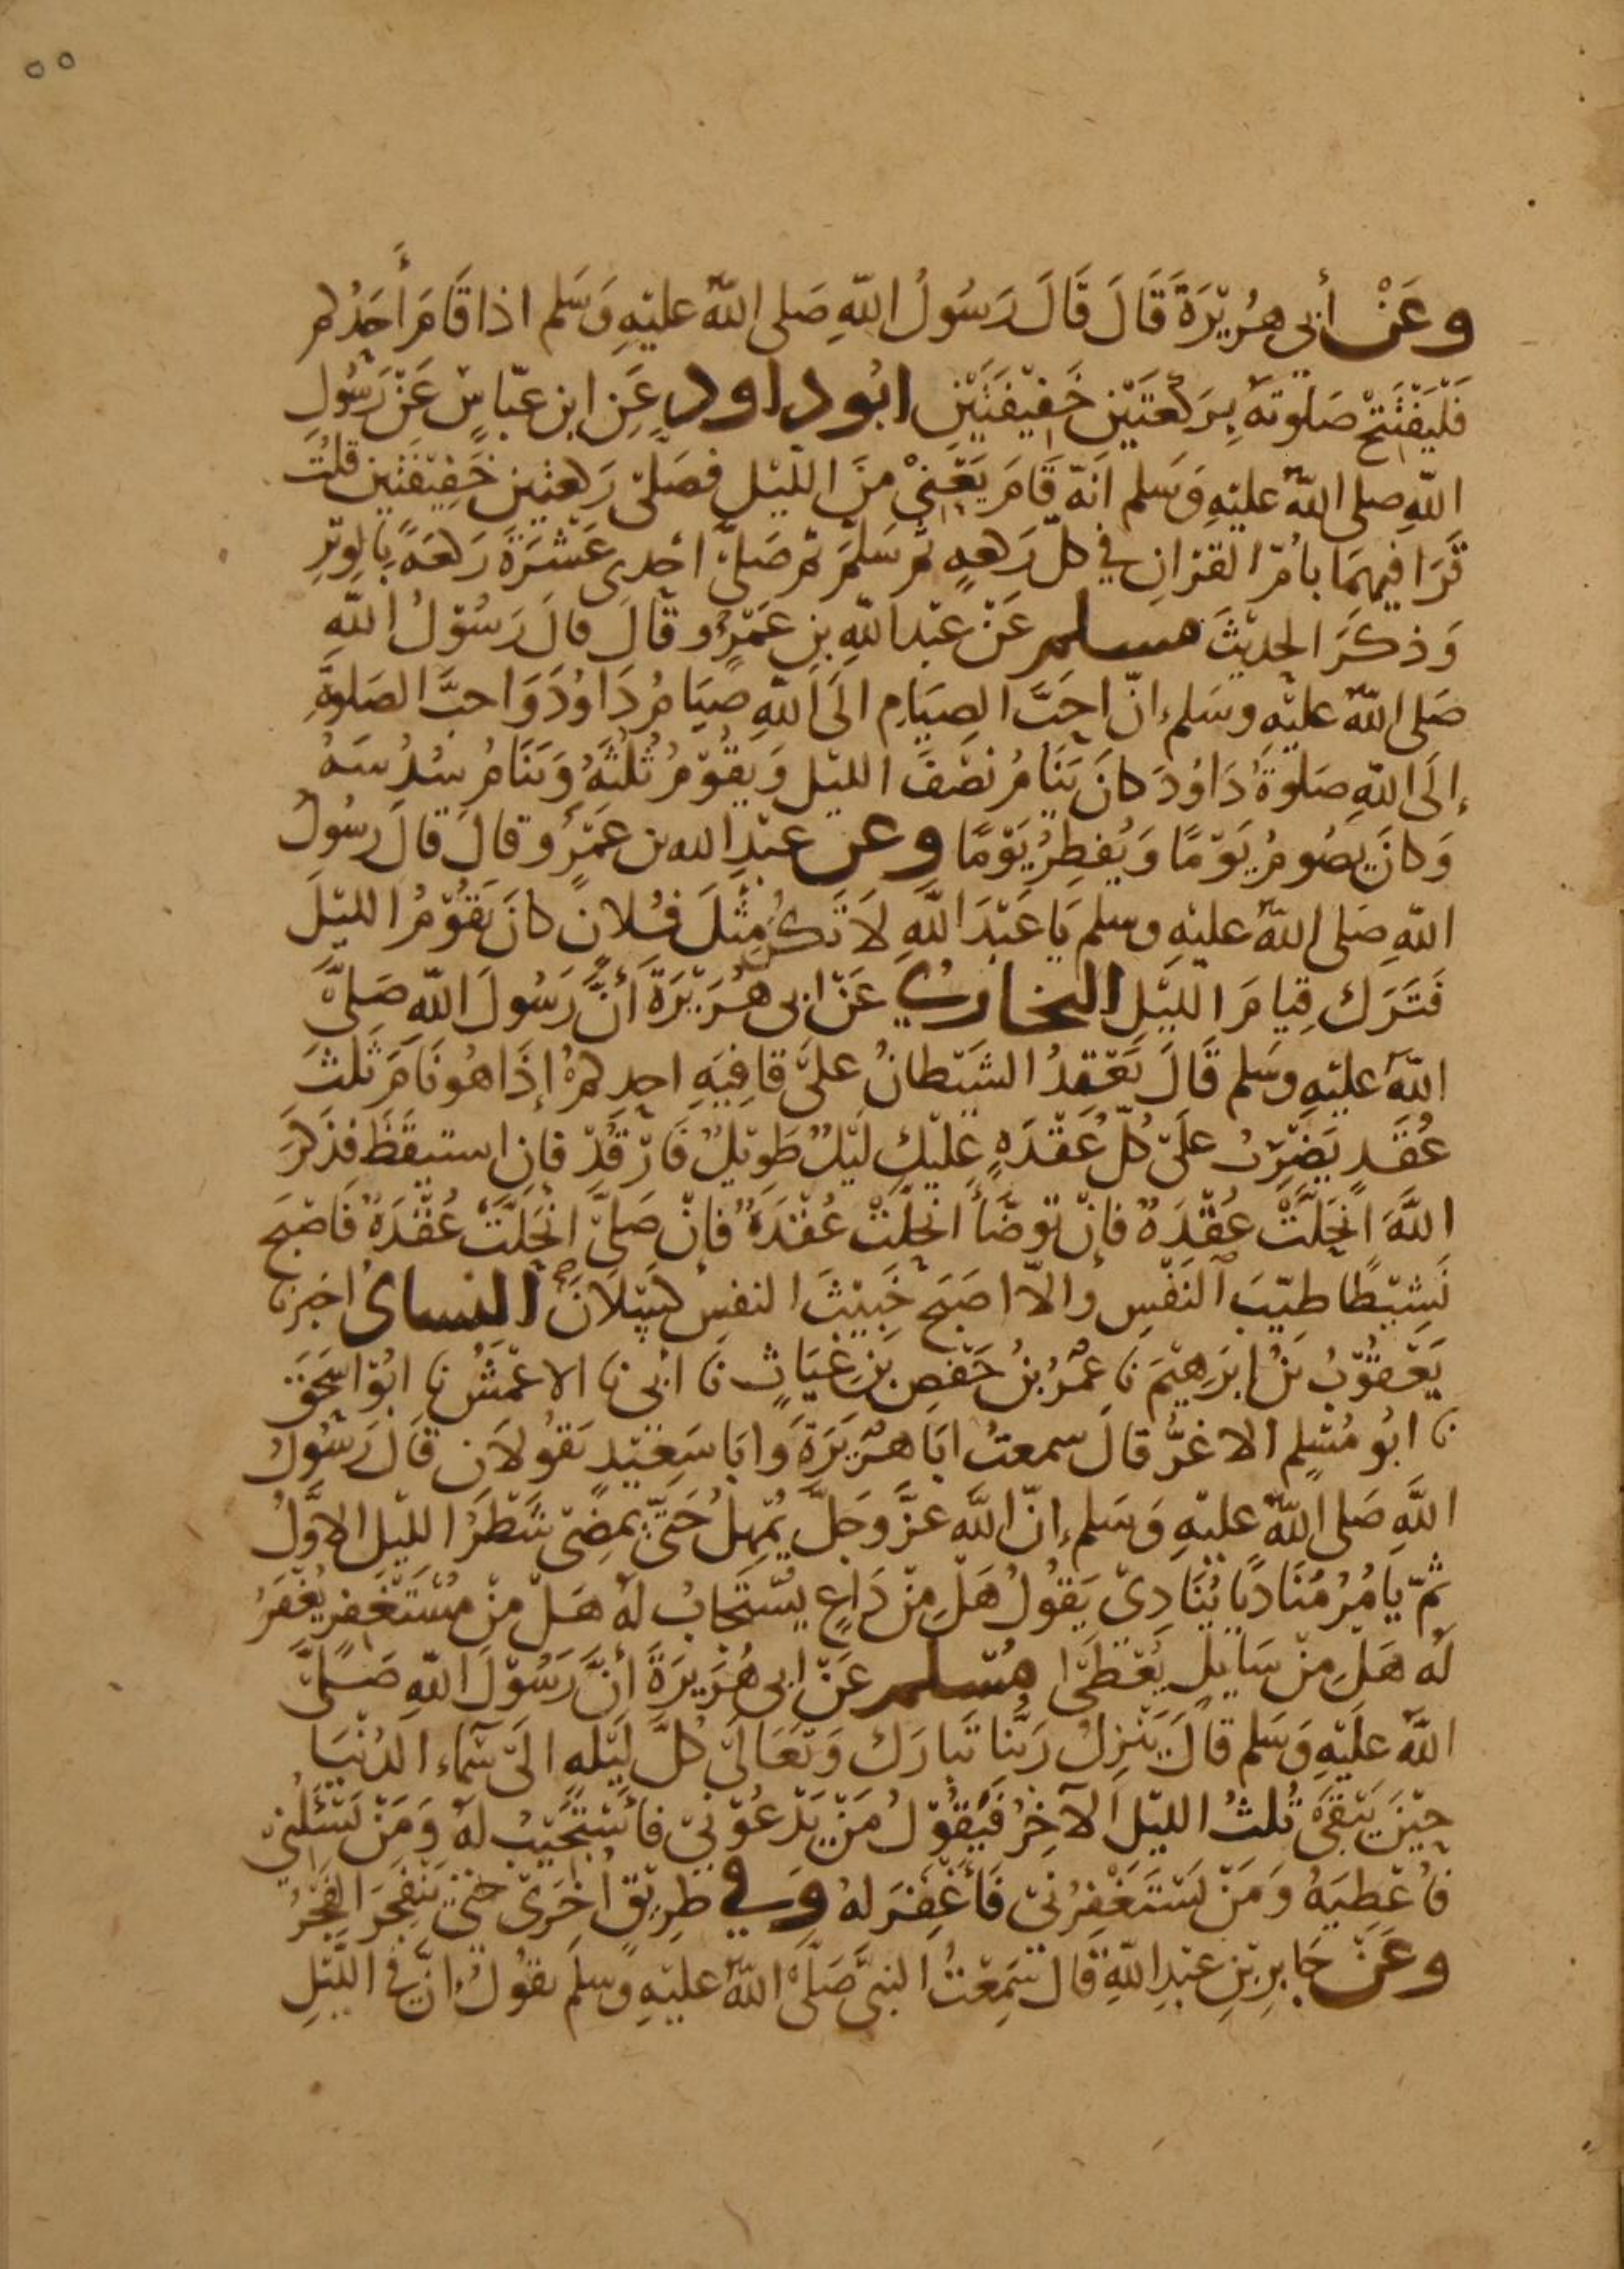 ٥٥
وعَنْ أبي هُرَيْرَةَ قَالَ قَالَ رَسُولُ اللّهِ صَلى اللّهُ عليْهِ وَسَلم اذا قَامَ أحَدُكم
فَلْيَفْتَتِحْ صَلوتهُ بِرَكعتَيْنِ خَفِيْفَتَيْنِ ابُو داود عَنِ ابن عبّاسٍ عَنْ رَسُولِ
اللّهِ صلى اللّهُ عليْهِ وَسَلم انّه قَامَ يَعْنِيْ منَ الليْل فصَلّى رَكعتين خَفِيْفَتَيْن قلتُ
قَرَا فيهمَا بامّ القرْانِ في كلّ رَكعهٍ ثم سَلّمَ ثم صَلىّ احْدى عَشْرَةَ رَكعَهً بِالوِتْرِ
وَذكَرَ الحديْثَ مسلم عَنْ عبْد اللّهِ بنِ عَمْرٍو قَالَ قالَ رَسُوْلُ اللّهِ
صَلى اللّهُ عليْهِ وسَلم انّ احَبَّ الصِيَامِ الَى اللّهِ صِيَامُ دَاوُدَ وَاحبَّ الصَلوةِ
إلَى اللّهِ صَلوةُ دَاوُدَ كانَ يَنَامُ نصْفَ الليْل وَيَقُوْمُ ثُلثَهُ وَيَنَامُ سُدُسَهُ
وَكانَ يصُومُ يَوْمًا وَيُفطِرُ يَوْمًا وعن عبْدِ الله بن عَمْرٍو قالَ قالَ رسُولُ
اللّهِ صَلى اللّهُ عليْهِ وسلم يَا عَبْدَ اللّهِ لَا تَكُنْ مِثْلَ فُلانٍ كانَ يَقُوْمُ الليْلَ
فَتَرَك قِيامَ الليْلِ البخاري عَنْ ابى هُرَيْرَةَ أنَّ رَسُولَ اللّهِ صَلىَّ
اللّهُ عليْهِ وسَلم قَالَ يَعْقِدُ الشَيْطانُ علىَ قافِيَهِ احدِكمْ إذَا هُو نَامَ ثلثَ
عُقَدٍ يَضْرِبُ عَلَى كلّ عُقْدَهٍ عليْكَ لَيْلٌ طَوِيْلٌ فَارْقُدْ فإن استيقَظَ فذَكرَ
اللَّهَ انحَلَّتْ عُقْدَهٌ فإنْ توضّأ انحَلّتْ عُقْدَهٌ فإنْ صَلىّ انحَلّتْ عُقْدَهٌ فَاصْبحَ
نَشِيْطًا طيّبَ النَفْسِ والاّ اصَبَح خَبِيْثَ النفسِ كَسْلَانَ النساى اخبرنا
يَعْقُوْبُ بْنُ ابرَهِيْمَ نا عمَرُ بنُ حَفْصِ بْنِ غيَاثٍ نا ابْى نا الاعْمَشُ نا ابُوْ اسْحَقَ
نا ابُو مُسْلِم الاغرُّ قالَ سمعتُ ابَا هُرَيْرَةَ وابَا سَعِيْدٍ يَقُولَانِ قَالَ رَسُوْلُ
اللَّهِ صَلى اللّهُ عليْهِ وَسَلم انّ اللَّهَ عزَّ وَجَلَّ يُمْهِلُ حَتّى يَمضِىَ شَطْرَ الليْلِ الاوَّلُ
ثُمّ يَامُرُ مُنَادِيًا يُنَادِىْ يَقُولُ هَلْ مِنْ دَاعٍ يُسْتَجَابُ لَهُ هَلْ مِنْ مُسْتَغْفِرٍ يُغْفَرُ
لَهُ هَلْ مِنْ سَايِلٍ يُعْطَى مُسْلم عَنْ ابى هُرَيْرَةَ أنَّ رَسُوْلَ اللّهِ صَلىَّ
اللّهُ عَلَيْهِ وَسَلم قالَ يَنْزِلُ رَبَّنَا تَبارَكَ وَتَعَالَى كُلَّ لَيْلهٍ الَى سَمَاء الدُنْيَا
حِيْنَ يَبْقَى ثُلثُ الليْل الآخِرُ فَيَقُوْلُ مَنْ يَدْعُوْنِيْ فأسْتَجِيْبُ لهُ وَمَنْ يَسْئَلُنِيْ
فاُعْطِيَهُ وَمَنْ يَسْتَغْفِرُنِىْ فَأغْفِرَ لهُ وَفي طَرِيْقٍ اُخْرَى حتّى يَنْفَجِرَ الفَجْرُ
وعَنْ جَابِرِ بْنِ عبْدِ اللّهِ قَالَ سَمِعْتُ النبىَّ صَلّىَ اللّهُ عليْهِ وَسلمَ يقُولُ انّ في الليْلِ